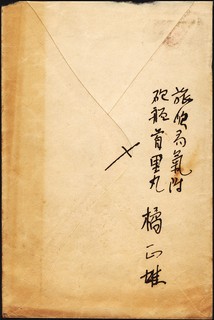 旅順局氣附
砲艦首里丸 橘正雄
〆